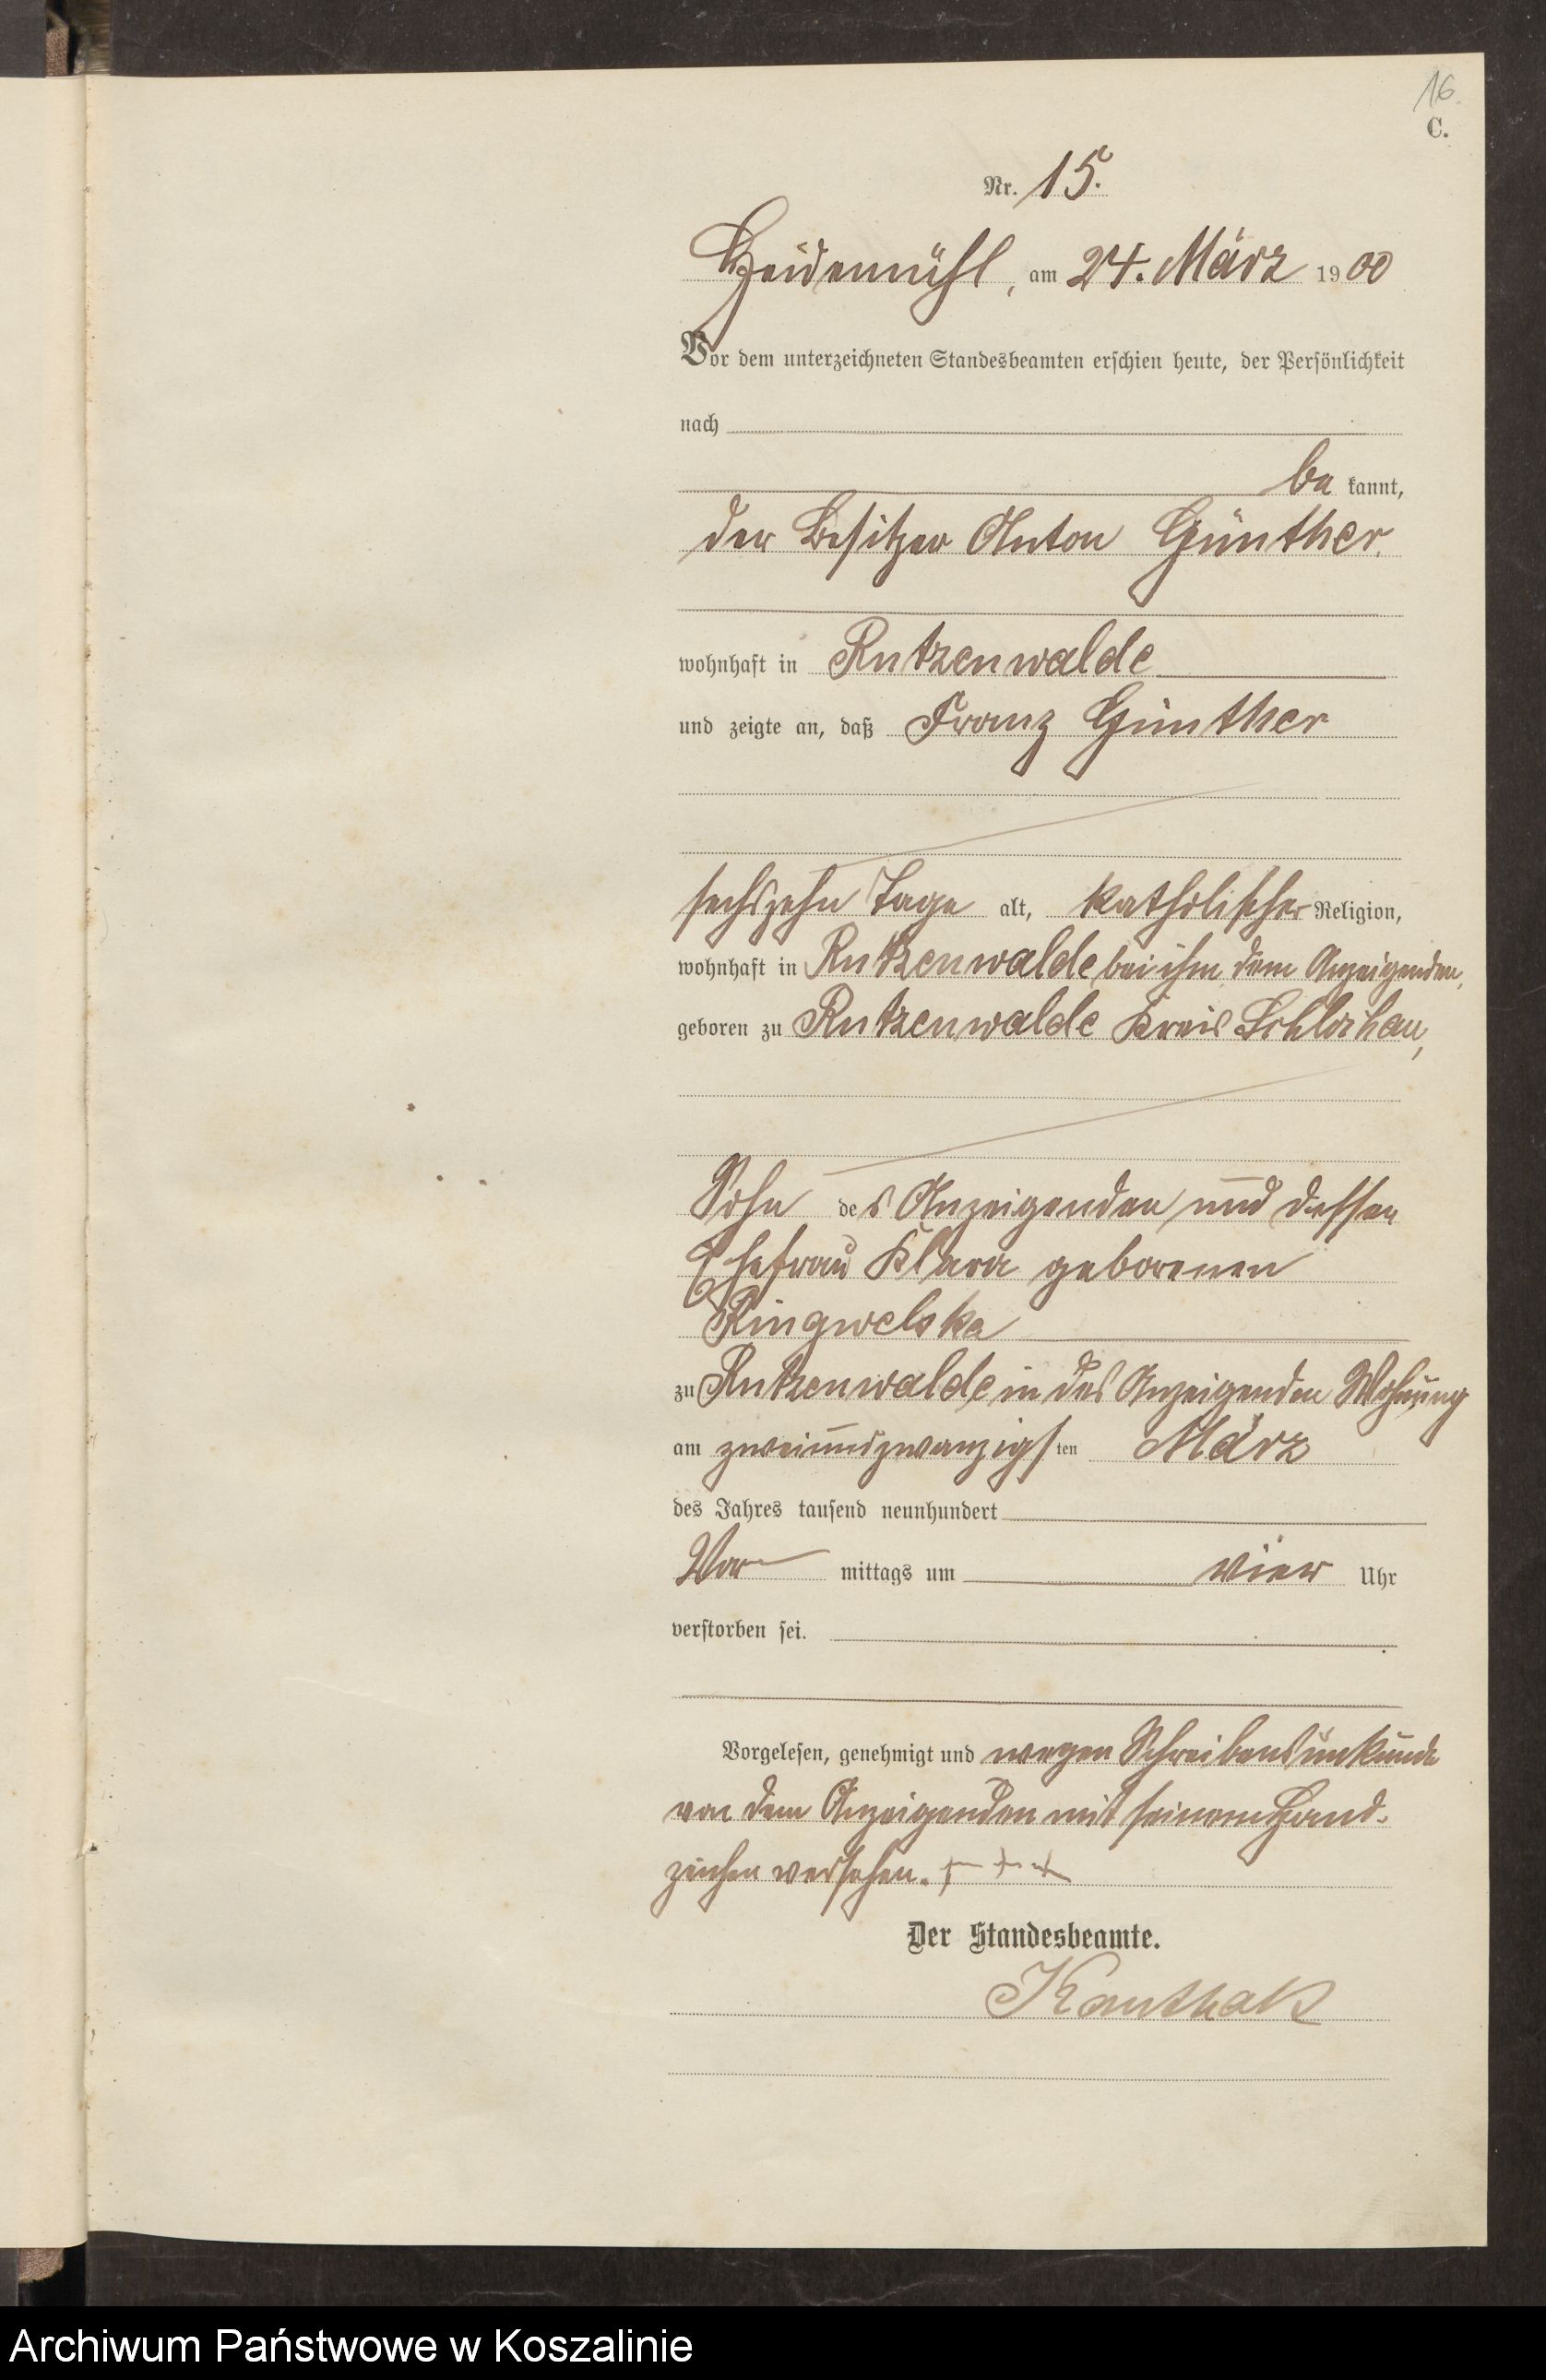 16.
C.
Nr. 15.
Heidemühl, am 24. März 1900
Vor dem unterzeichneten Standesbeamten erschien heute, der Persönlichkeit
nach
be kannt,
der Besitzer Anton Günther.
wohnhaft in Rutzenwalde
und zeigte an, daß Franz Günther
sechszehn Tage alt, katholischer Religion,
wohnhaft in Rutzenwalde bei ihm dem Anzeigenden,
geboren zu Rutzenwalde Kreis Schlochau,
Sohn des Anzeigenden und dessen
Ehefrau Klara geborenen
Ringwelska
zu Rutzenwalde in des Anzeigenden Wohnung
am zweiundzwanzigsten März
des Jahres tausend neunhundert
Vor mittags um vier Uhr
verstorben sei.
Vorgelesen, genehmigt und wegen Schreibensunkunde
von dem Anzeigenden mit seinem Hand-
zeichen versehen. + + +
Der Standesbeamte.
Kanthak
Archiwum Państwowe w Koszalinie